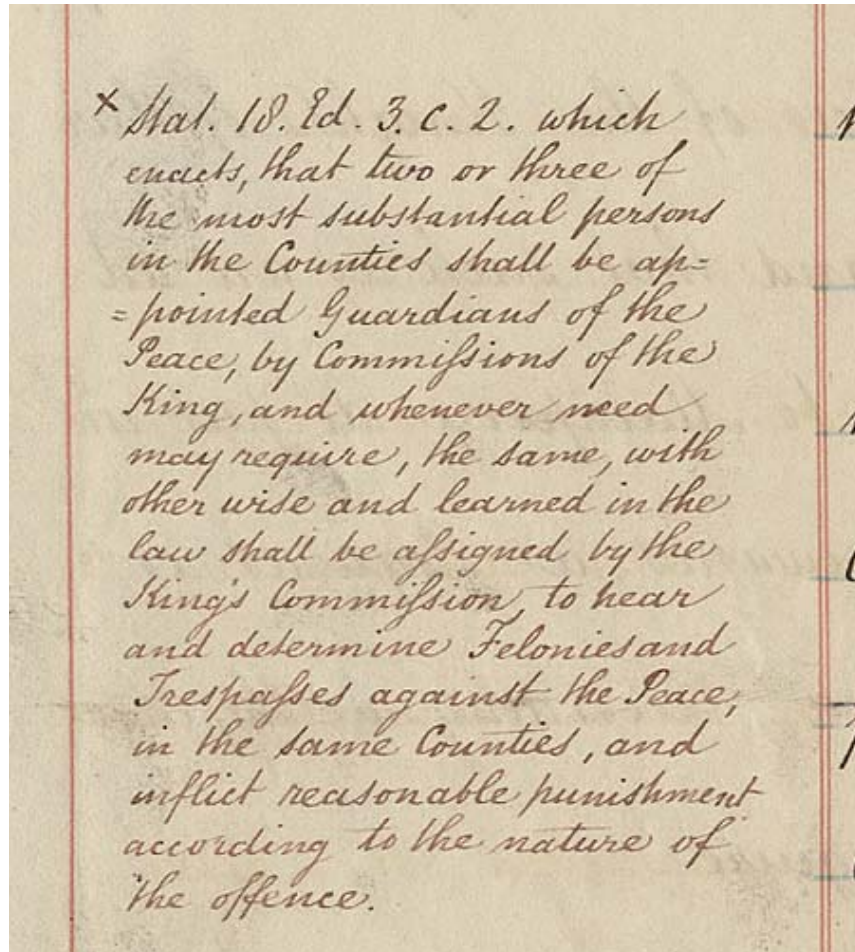 × Stat. 18. Ed. 3. C. 2. which
enacts, that two or three of
the most substantial persons
in the Counties shall be ap=
=pointed Guardians of the
Peace, by Commiſsions of the
King, and whenever need
may require, the same, with
other wise and learned in the
law shall be aſsigned by the
King's Commiſsion, to hear
and determine Felonies and
Trespaſses against the Peace,
in the same Counties, and
inflict reasonable punishment
according to the nature of
the offence.